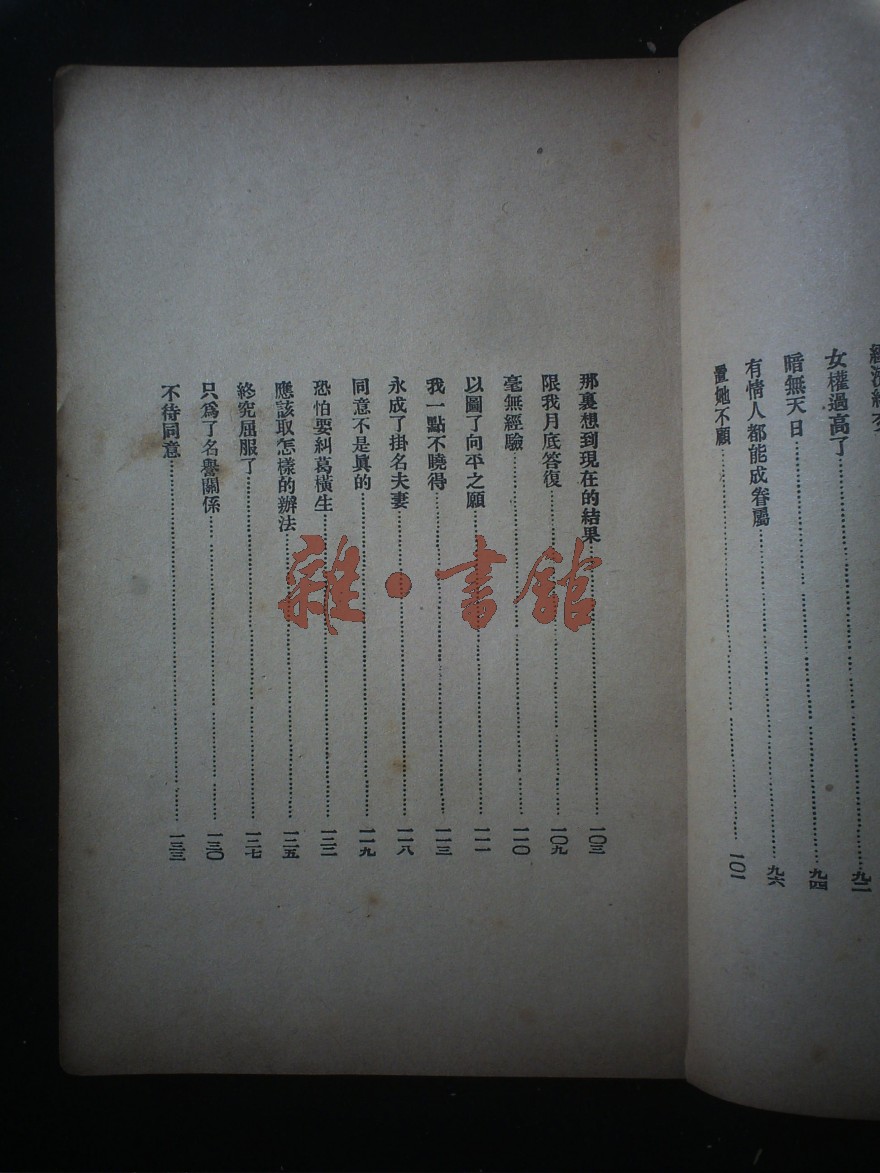 女權過高了……九二
暗無天日……九四
有情人都能成眷屬……九六
置她不顧……一〇一
那裏想到現在的結果……一〇三
限我月底答復……一〇九
毫無經驗……一一〇
以圖了向平之願……一一一
我一點不曉得……一一三
永成了掛名夫妻……一一八
同意不是眞的……一一九
恐怕要糾葛橫生……一二三
應該取怎樣的辦法……一二五
終究屈服了……一二七
只爲了名譽關係……一三〇
不待同意……一三三
雜·書舘